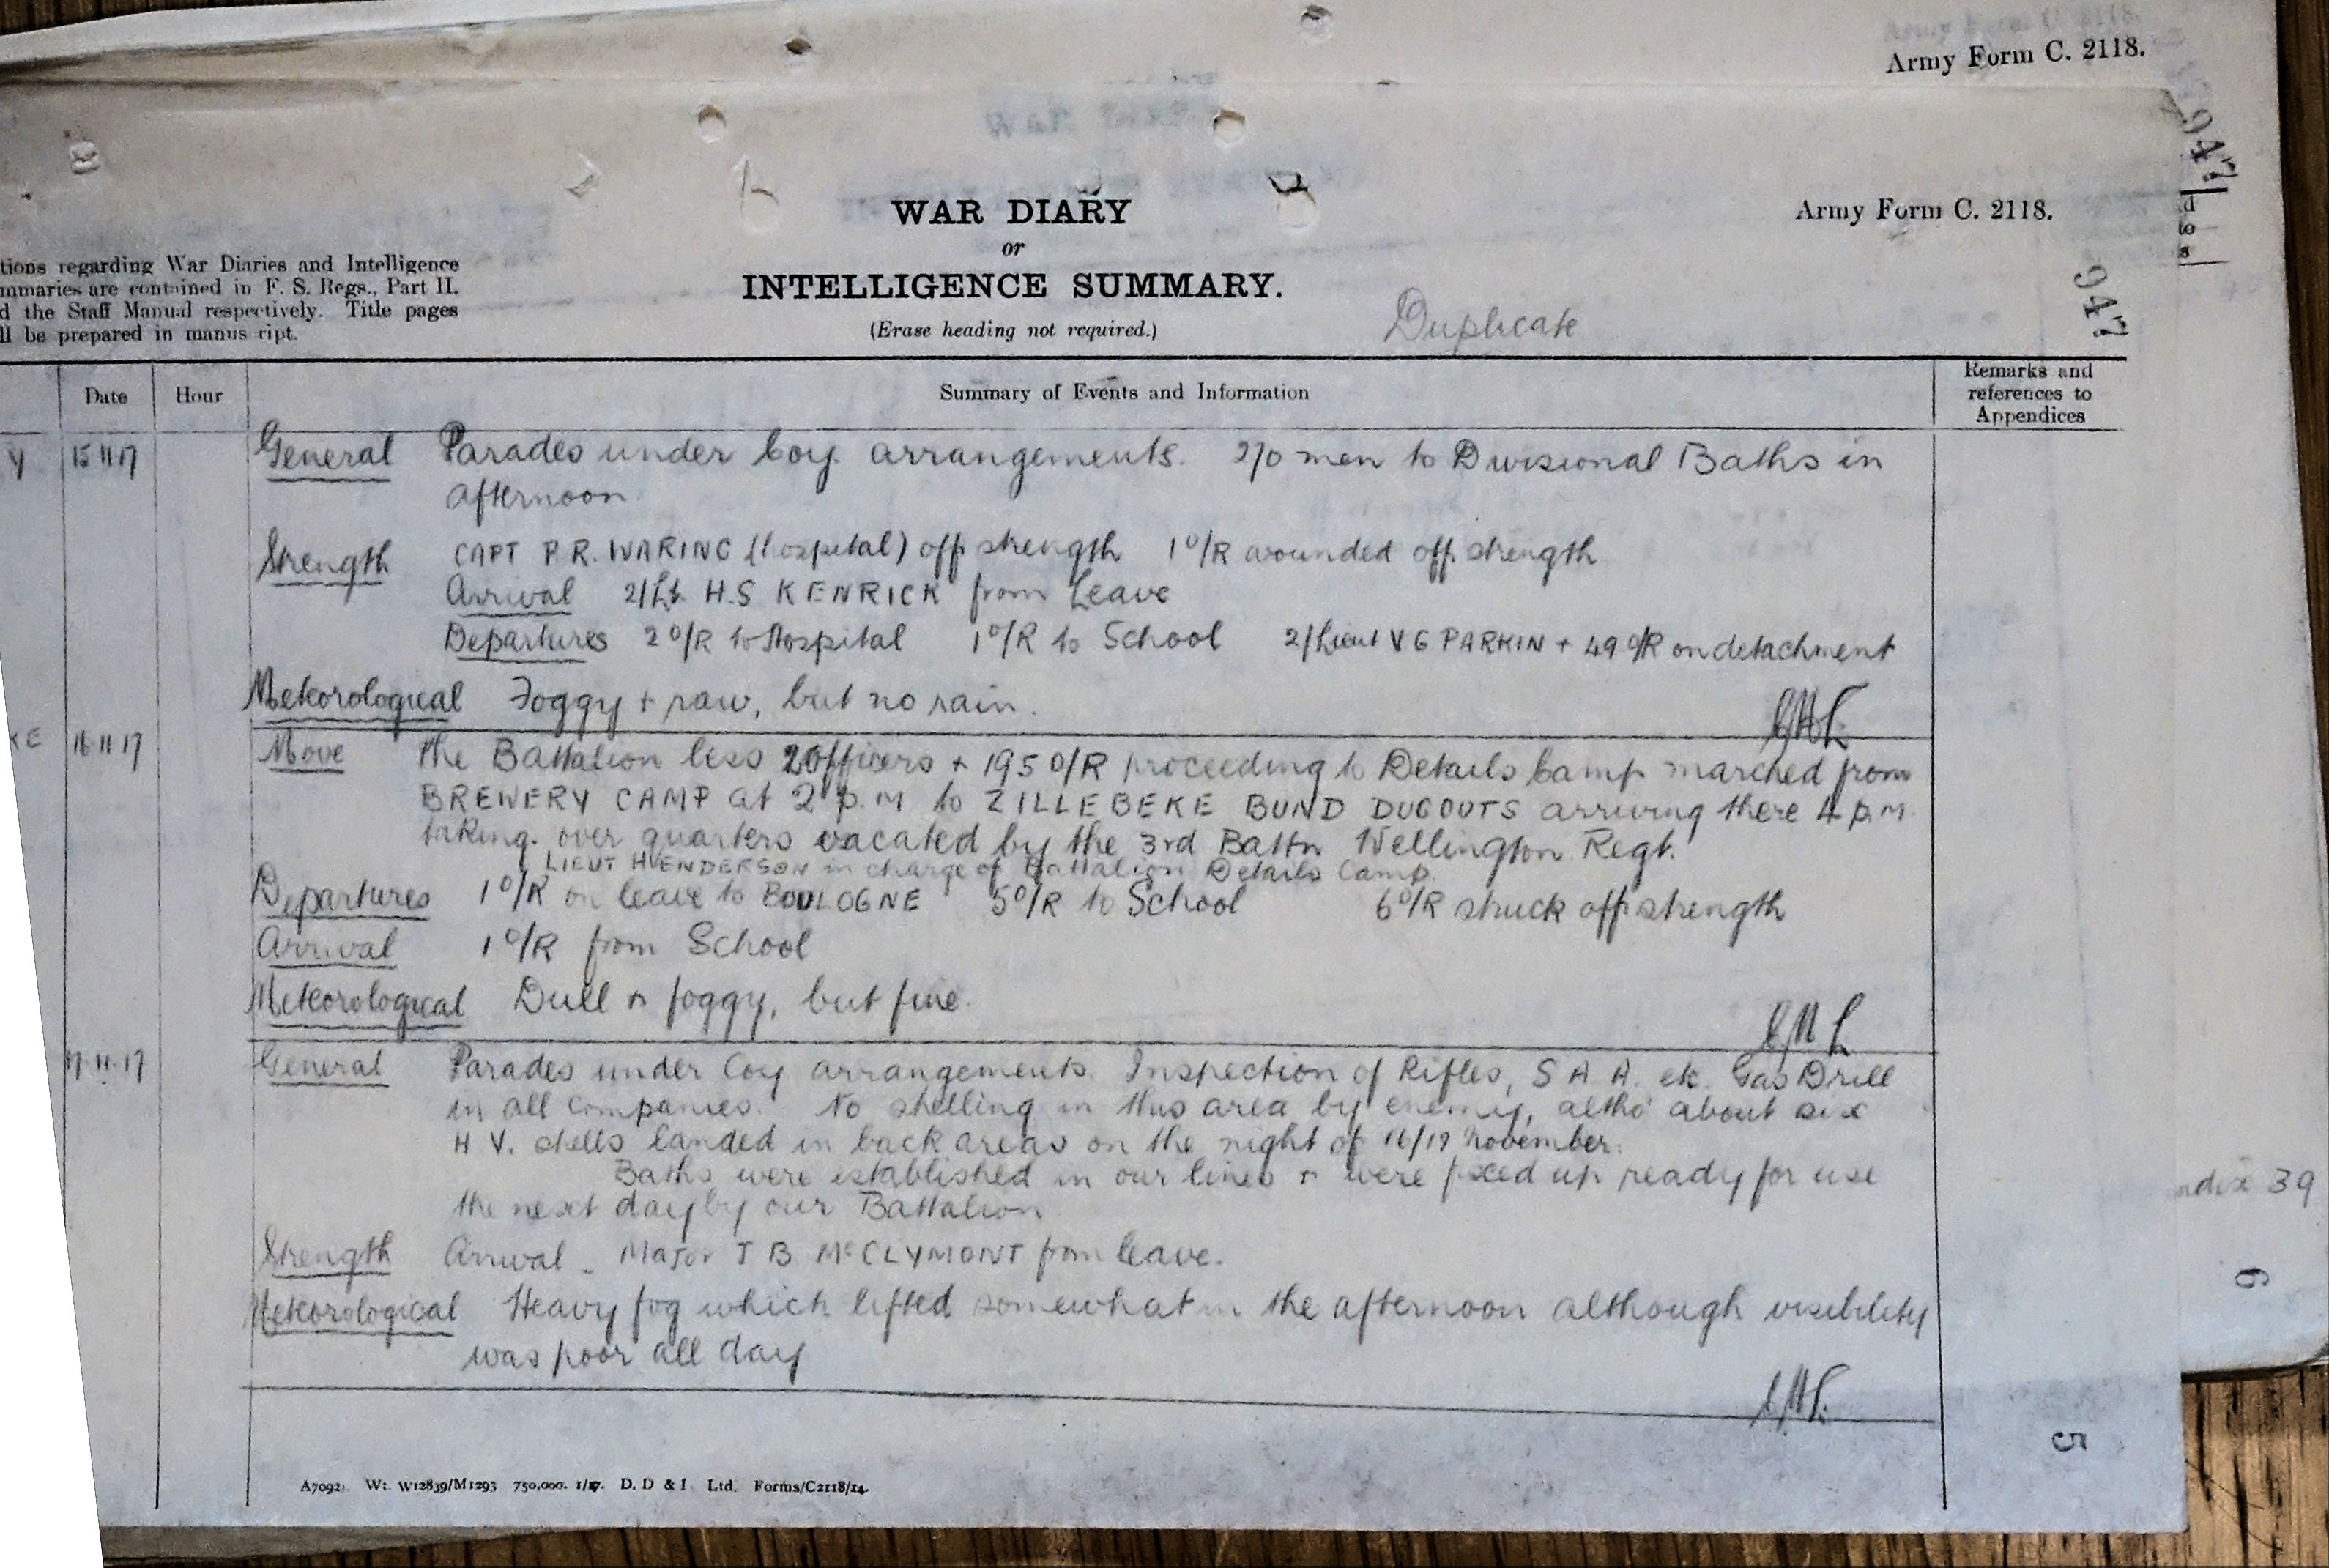 Army Form C. 2118.
WAR DIARY
or
INTELLIGENCE SUMMARY.
(Erase heading not required.)
Army Form C. 2118.
Duplicate
947
947
tions regarding War Diaries and Intelligence
mmaries are contained in F. S. Regs., Part II.
d the Staff Manual respectively. Title pages
ll be prepared in manus ript.
Date Hour Summary of Events and Information Remarks and
references to
Appendices
Y 15 11 17 General Parades under Coy. arrangements. 270 men to Divisional Baths in
afternoon.
Strength CAPT P.R. WARING (hospital) off strength 1 O/R wounded off strength
Arrival 2/Lt. H.S KENRICK from Leave
Departures 2 O/R to Hospital 1 O/R to School 2/Lieut V G PARKIN + 49 O/R on detachment
Meteorological Foggy + raw, but no rain.
KE 16 11 17 Move The Battalion less 2 Officers + 195 O/R proceeding to Details Camp marched from
BREWERY CAMP at 2 P.M to ZILLEBEKE BUND DUGOUTS arriving there 4 P.M.
taking over quarters vacated by the 3rd Battn Wellington Regt.
LIEUT HENDERSON in charge of Battalion Details Camp.
Departures 1 O/R on leave to BOULOGNE 5 O/R to School 6 O/R struck off strength
Arrival 1 O/R from School
Meteorological Dull + foggy, but fine.
17.11.17 General Parades under Coy arrangements. Inspection of Rifles, S A A. etc. Gas Drill
in all companies. No shelling in this area by enemy, altho' about six
H V. shells landed in back areas on the night of 16/17 November.
Baths were established in our lines + were fixed up ready for use
the next day by our Battalion
Strength Arrival - Major J B McCLYMONT from leave.
Meteorological Heavy fog which lifted somewhat in the afternoon although visibility
was poor all day
ndix 39
6
5
A7092. Wt. W12839/M1293 750,000. 1/17. D. D & I. Ltd. Forms/C2118/14.